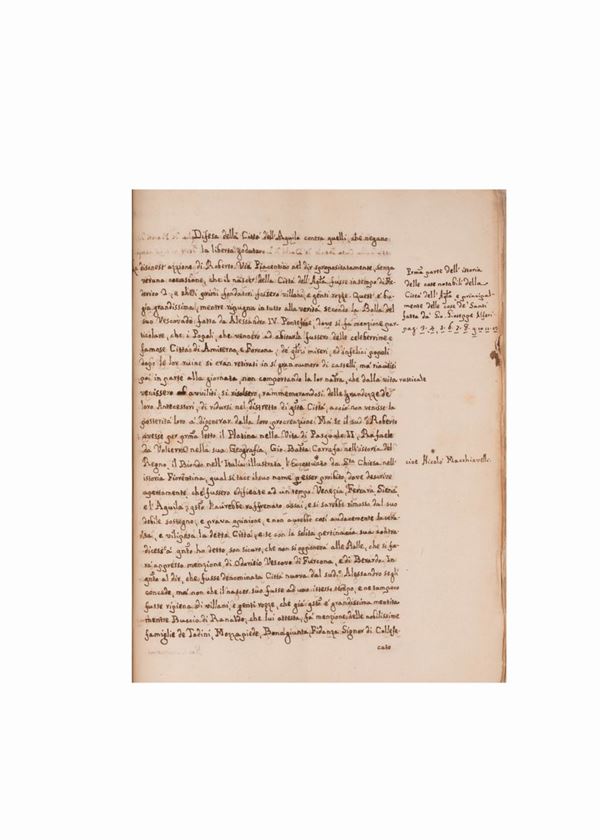 Difesa della Città dell'Aquila contra quelli, che negano
la libertà goduta
azzione di Roberto. Vià Piacentino nel dir spropositatamente, senza
veruna occasione, che il nascer della Città dell'Aqla fusse in tempo di Fe-
derico 2; e che i primi fondatori fussero villani, e genti rozze. Quest'è bu-
gia grandissima, mentre ripugna in tutto alla verità, secondo la Bolla del
suo Vescovado fatta da Alessandro IV. Pontefice, dove si fa menzione par-
ticolare, che i Popoli, che vennero ad abitarla fussero delle celeberrime e
famose Città di Amiterno, e Forcona; de qli miseri, ed infelici popoli
dopo le lor ruine si eran retirati in si gran numero di castelli, ma riavutisi
poi in parte alla giornata, non comportando la lor natra, che dalla vita rusticale
venissero avviliti, si risolsero, rammemorandosi della grandezza de'
loro Antecessori, di ridursi nel distretto di qsta Città, acciò non venisse la
posterità loro a digenerar dalla loro procreazione. Ma se il sudo Roberto
avesse per prma letto il Platina nella Vita di Pasquale II, Rafaele
da Volterra nella sua Geografia, Gio: Batta Carrafa nell'istoria del
Regno, il Biondo nell'Italia illustrata, l'Eccettuato da Sta Chiesa nell'
istoria Fiorentina, qual si tace il suo nome p esser proibito, dove descrive
apertamente, che fussero edificate ad un tempo, Venezia, Ferrara, Siena,
e l'Aquila; qsto l'haurebbe raffrenato assai, e si sarebbe rimosso dal suo
debile sostegno, e prava opinione, e non avrebbe così audacemente lacerà-
ta, e vilipesa la detta Città; e se con la solita pertinacia sua poltra
dicesse; qnto ha detto, son sicuro, che non si opponerà alle Bolle, che si fa-
rà appresso menzione, di Odorisio Vescovo di Furcona, e di Berardo. In
qnto al dir, che fusse denominata Città nuova dal sudo Alessandro se gli
concede, ma non che il nascer suo fusse ad uno istesso tempo, e ne tampoco
fusse ripiena di villani, e genti rozze, che già qsto è grandissima mentita
mentre Buccio di Ranaldo, che lui attesta, fa menzione delle nobilissime
famiglie de Todini, Mozzapiede, Bonagiunta, Fidanza Signor di Collese-
cato
Prima parte dell'istoria
delle cose notabili della
Città dell'Aqla e principal-
mente delle cose de' Santi
fatta da Gio: Giuseppe Alferi
pag. 3. 4. 5. 6. 7. 8. 9. 10. 11. 12
cioè Nicolò Macchiavelli.